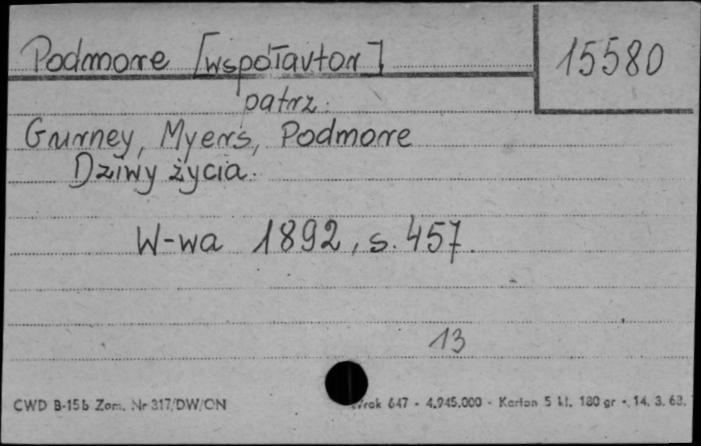 Podmore [współautor] 15580
patrz.
Gurney, Myers, Podmore
Dziwy życia.
W-wa 1892, s. 457.
13
CWD B-15b Zam. Nr 317/DW/ON
647 - 4.945.000 - Karton 5 kl. 180 gr - 14. 3. 63.